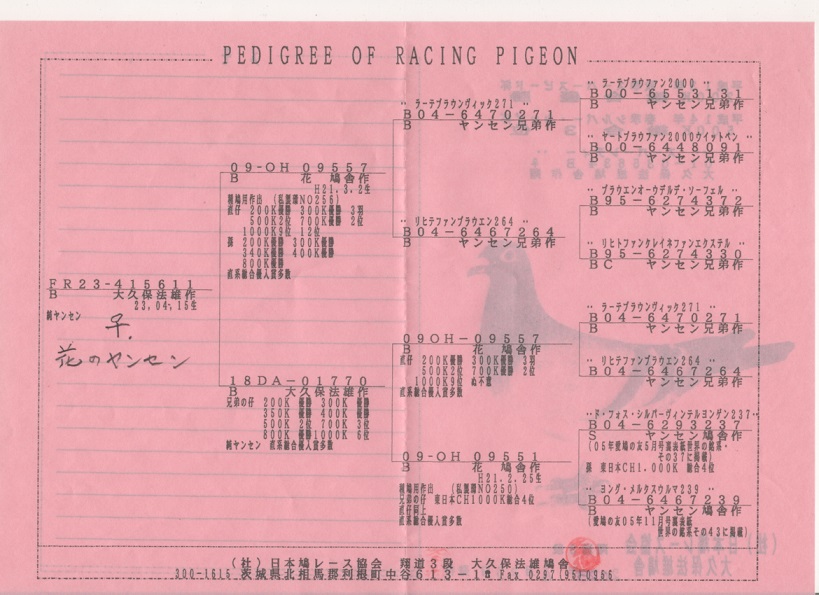 PEDIGREE OF RACING PIGEON
FR23-415611
B 大久保法雄作
23.04.15生
純ヤンセン
花のヤンセン
09-OH 09557
B 花 鳩舎作
H21.3.2生
直仔 200K優勝 300K優勝 3羽
500K2位 700K優勝 2位
1000K9位 12位
孫 200K優勝 300K優勝
340K優勝 400K優勝
800K優勝
直系総合優入賞多数
18DA-01770
B 大久保法雄作
兄弟の仔 200K 優勝 300K 優勝
350K 優勝 400K 優勝
500K 2位 700K 3位
800K 優勝 1000K 6位
純ヤンセン 直系総合優入賞多数
‥ラーテブラウンヴィック271 ‥
B04-6470271
B ヤンセン兄弟作
‥ リヒテファンブラウエン264 ‥
B04-6467264
B ヤンセン兄弟作
09OH-09557
B 花 鳩舎作
直仔 200K優勝 300K優勝 3羽
500K2位 700K優勝 2位
1000K9位
直系総合優入賞多数
09-OH 09551
B 花 鳩舎作
H21.2.25生
兄弟の仔 東日本CH1000K総合4位
直系総合優入賞多数
‥ ラーテブラウファン2000 ‥
B00-6553131
B ヤンセン兄弟作
‥ ヤートブラウファン2000ウイットペン ‥
B00-6448091
B ヤンセン兄弟作
‥ ブラウエンオーウデルデ・ソーフェル ‥
B95-6274372
B ヤンセン兄弟作
‥ リヒトファンタレイネファンエクステル ‥
B95-6274330
BC ヤンセン兄弟作
‥ ラーテブラウヴィック271 ‥
B04-6470271
B ヤンセン兄弟作
‥ リヒテファンブラウエン264 ‥
B04-6467264
B ヤンセン兄弟作
‥ド・フォス・シルバーヴィンテルヨンゲン237‥
B04-6293237
S ヤンセン鳩舎作
(05年愛鳩の友5月号裏表紙世界の銘系・
その37に掲載)
孫 東日本CH1.000K 総合4位
‥ ヨング・メルクスウルマ239 ‥
B04-6467239
B ヤンセン鳩舎作
(愛鳩の友05年11月号裏表紙
世界の銘系その43に掲載)
(社)日本鳩レース協会 翔道3段 大久保法雄鳩舎
300-1615 茨城県北相馬郡利根町中谷613-1